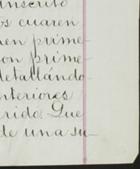 nscrito
os cuaren
en prime-
on prime-
detallándo
nteriores
rido. Que
de una su-